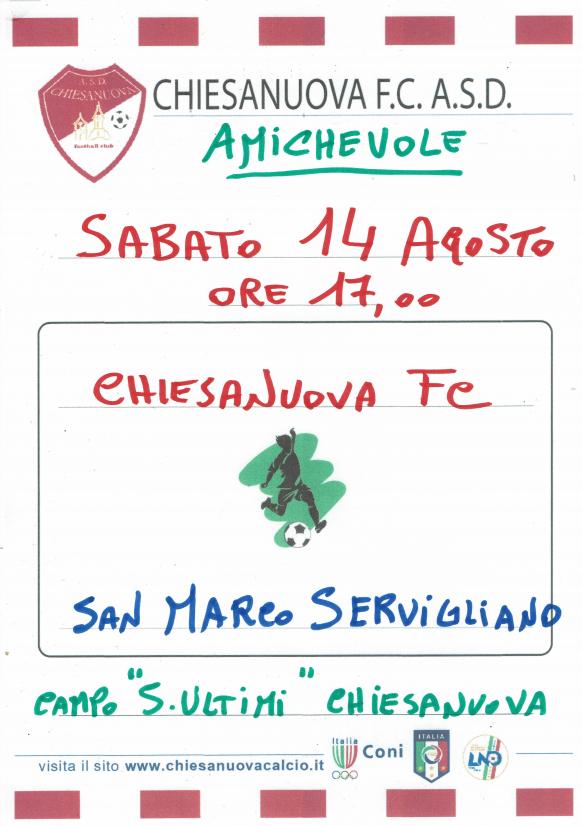 A.S.D.
CHIESANUOVA
football club
CHIESANUOVA F.C. A.S.D.
AMICHEVOLE
SABATO 14 AGOSTO
ORE 17,00
CHIESANUOVA FC
SAN MARCO SERVIGLIANO
CAMPO "S.ULTIMI" CHIESANUOVA
visita il sito www.chiesanuovacalcio.it
Italia
Coni
ITALIA
FIGC
LND